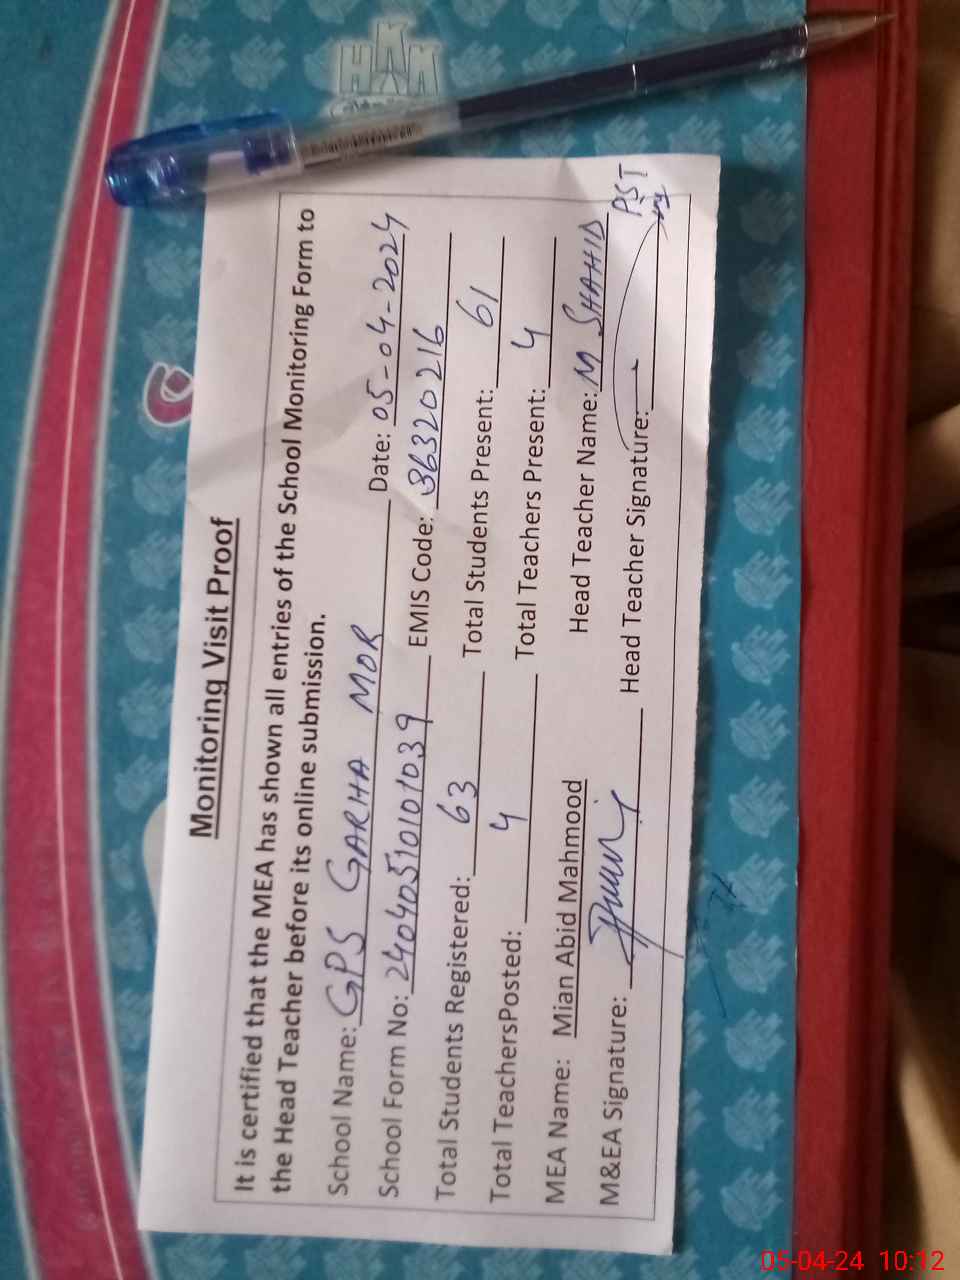 Monitoring Visit Proof
It is certified that the MEA has shown all entries of the School Monitoring Form to
the Head Teacher before its online submission.
School Name: GPS GARHA MOR Date: 05-04-2024
School Form No: 24040510101039 EMIS Code: 36320216
Total Students Registered: 63 Total Students Present: 61
Total TeachersPosted: 4 Total Teachers Present: 4
MEA Name: Mian Abid Mahmood Head Teacher Name: M SHAHID
M&EA Signature: Head Teacher Signature: PST
05-04-24 10:12